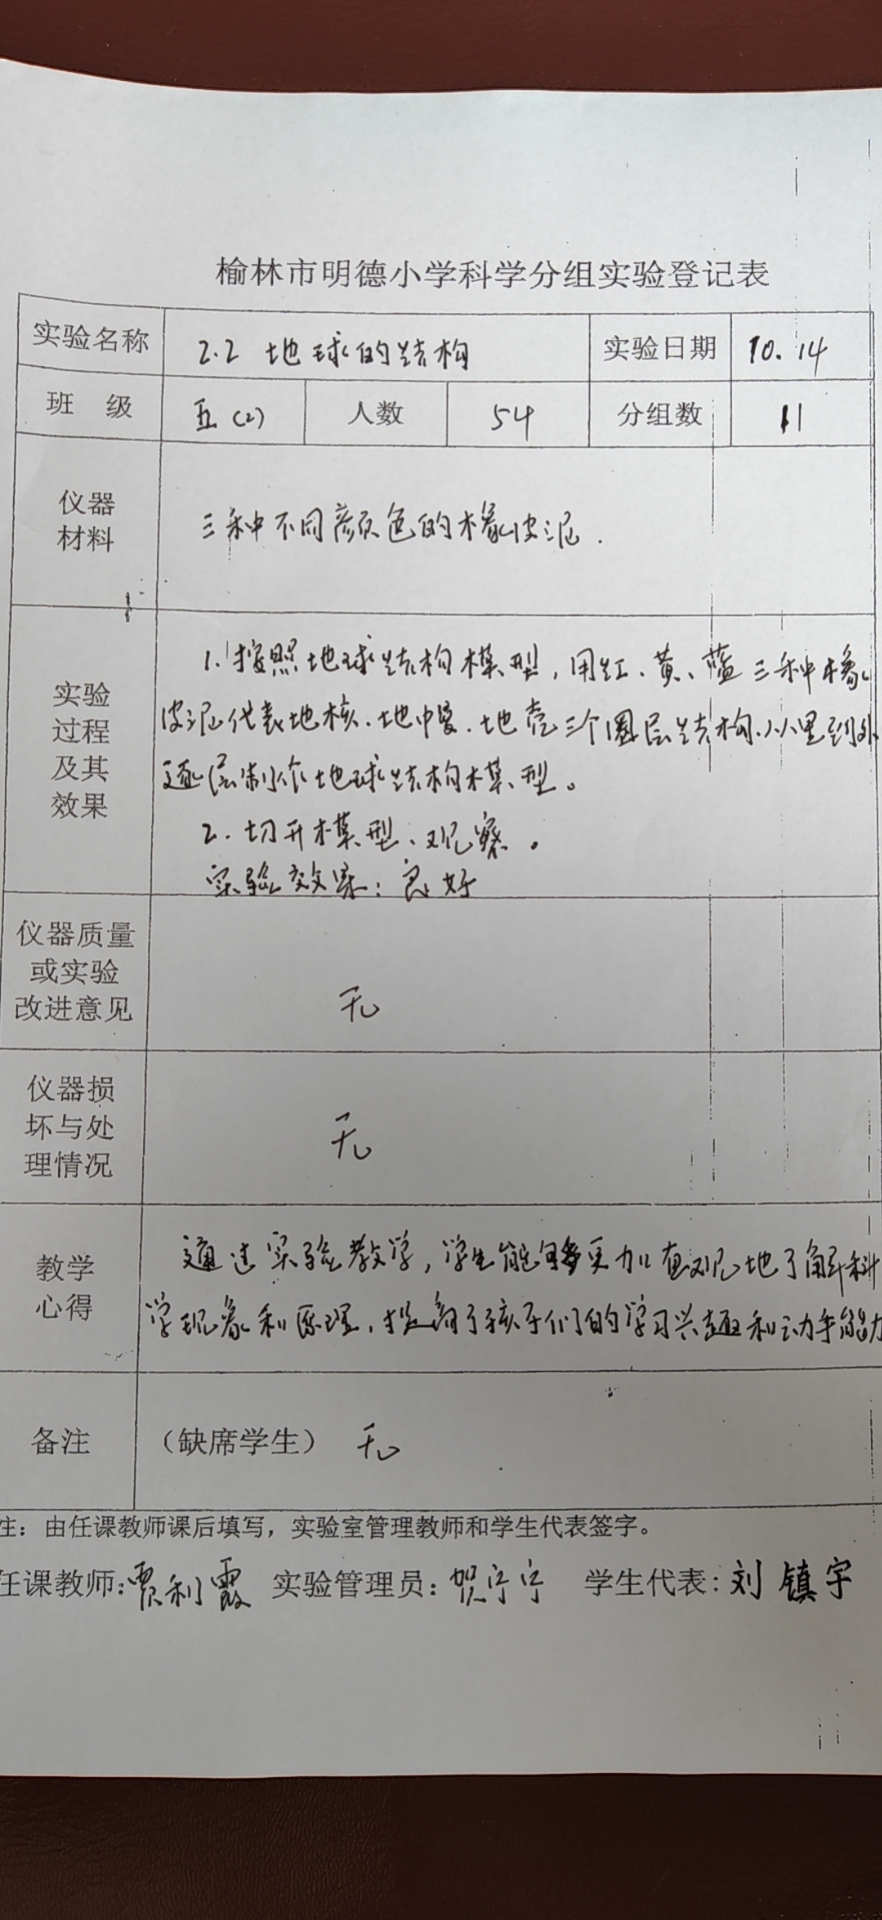 榆林市明德小学科学分组实验登记表
实验名称 2.2 地球的结构 实验日期 10.14
班 级 五(2) 人数 54 分组数 11
仪器
材料
三种不同颜色的橡皮泥.
实验
过程
及其
效果
1.按照地球结构模型,用红、黄、蓝三种橡
皮泥代表地核、地中曼、地壳三个圈层结构,从里到外
逐层制作地球结构模型。
2.切开模型、观察。
实验效果:良好
仪器质量
或实验
改进意见
无
仪器损
坏与处
理情况
无
教学
心得
通过实验教学,学生能够更加直观地了解科
学现象和原理,提高了孩子们的学习兴趣和动手能力
备注 (缺席学生) 无
注:由任课教师课后填写,实验室管理教师和学生代表签字。
任课教师:贾利霞 实验管理员:贺宁宁 学生代表:刘镇宇